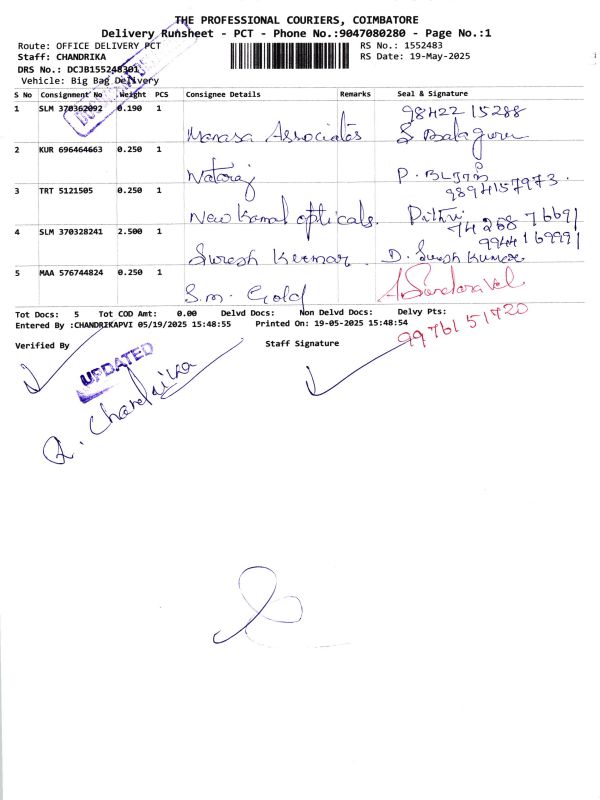 THE PROFESSIONAL COURIERS, COIMBATORE
Delivery Runsheet - PCT - Phone No.:9047080280 - Page No.:1
Route: OFFICE DELIVERY PCT
RS No.: 1552483
Staff: CHANDRIKA
RS Date: 19-May-2025
DRS No.: DCJB155248301
Vehicle: Big Bag Delivery
S No Consignment No Weight PCS Consignee Details Remarks Seal & Signature
98422 15288
1 SLM 370362092 0.190 1
Manasa Associates S Balaguru
2 KUR 696464663 0.250 1
Nataraj P.
9894157973.
3 TRT 5121505 0.250 1
New Kamal opticals.
74268 76691
4 SLM 370328241 2.500 1
9944169991
Suresh Kumar. D. Suresh Kumar
5 MAA 576744824 0.250 1
S.m. Gold A Sundaravel
Tot Docs: 5 Tot COD Amt: 0.00 Delvd Docs: Non Delvd Docs: Delvy Pts:
Entered By :CHANDRIKAPVI 05/19/2025 15:48:55 Printed On: 19-05-2025 15:48:54
99761 51720
Verified By Staff Signature
UPDATED
R. Chandrika